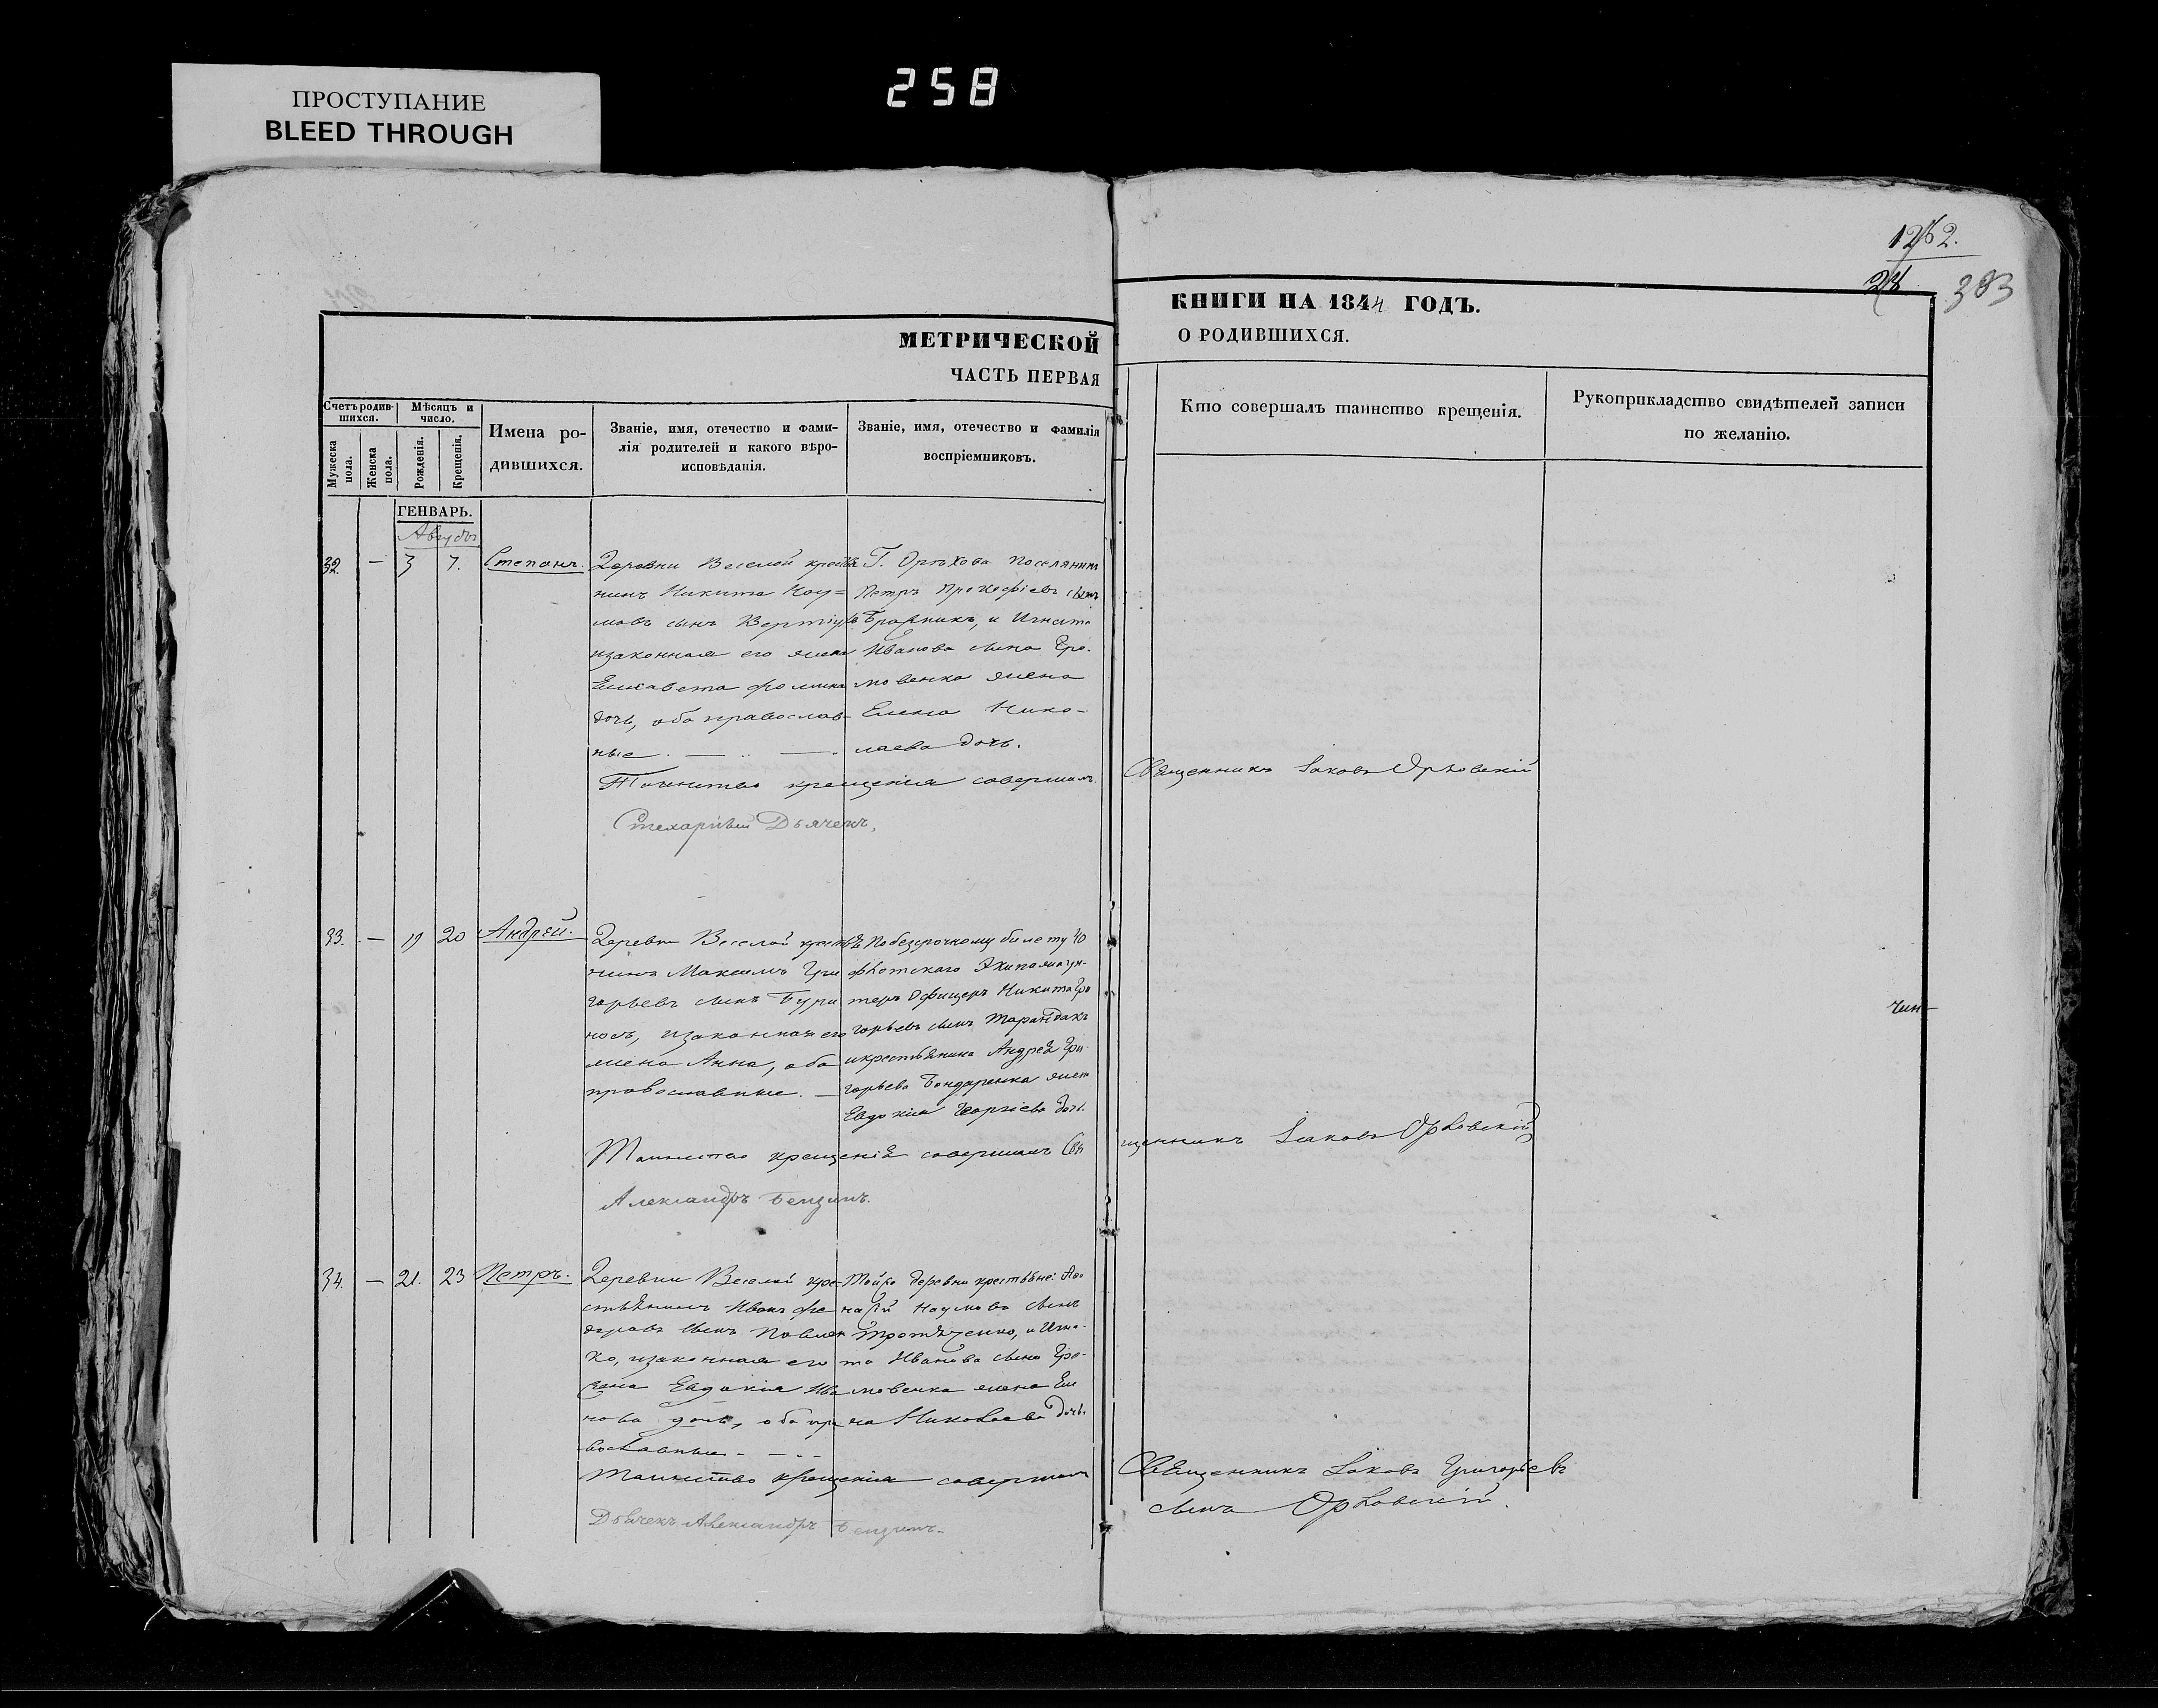 ПРОСТУПАНИЕ
BLEED THROUGH
258
1262.
24
393
МЕТРИЧЕСКОЙ
ЧАСТЬ ПЕРВАЯ
КНИГИ НА 1844 ГОДЪ.
О РОДИВШИХСЯ.
Счетъ родив-
шихся.
Мужеска пола.
Женска пола.
Мѣсяцъ и
число.
Рожденія.
Крещенія.
Имена ро-
дившихся.
Званіе, имя, отечество и фами-
лія родителей и какого вѣро-
исповѣданія.
Званіе, имя, отечество и фамилія
воспріемниковъ.
Кто совершалъ таинство крещенія.
Рукоприкладство свидѣтелей записи
по желанію.
ГЕНВАРЬ.
Августъ
32. — 3 7. Степанъ.
Деревни Веселой крестья
нинъ Никита Нау=
мовъ сынъ
изаконная его жена
Елисавета
дочь, оба православ-
ные
Г. Орѣхова поселянинъ
Петръ Прокофіевъ сынъ
Бражникъ, и Игната
Иванова сына Гро-
мовенка жена
Елена Нико-
лаева дочь.
Таинство крещенія совершалъ
Священникъ Іаковъ Орловскій
Стихарный Дьячекъ,
33. — 19 20 Андрей.
Деревни Веселой крестья
нинъ Максимъ Гри
горьевъ сынъ
изаконная его
жена Анна, оба
православные. —
По безсрочному билету 40
флотскаго Экипажа ун-
теръ Офицеръ Никита Гри
горьевъ сынъ Тарандакъ
икрестьянина Андрея Гри-
горьева Бондаренка жена
Евдокія Георгіева дочь.
чин
Таинство крещенія совершалъ Свя
щенникъ Іаковъ Орловскій
Александръ Бензинъ.
34. — 21. 23 Петръ.
Деревни Веселой кре-
стьянинъ Иванъ Фе
доровъ сынъ Павлен
ко, изаконная его
жена Евдокія Ива
нова дочь, оба пра
вославные - — - -
Тойже деревни крестьяне: Аѳа
насій Наумовъ сынъ
и Игна-
та Иванова сына Гро-
мовенка жена Еле
на Николаева дочь.
Таинство крещенія совершалъ
Священникъ Іаковъ Григорьевъ
сынъ Орловскій.
Дьячекъ Александръ Бензинъ.